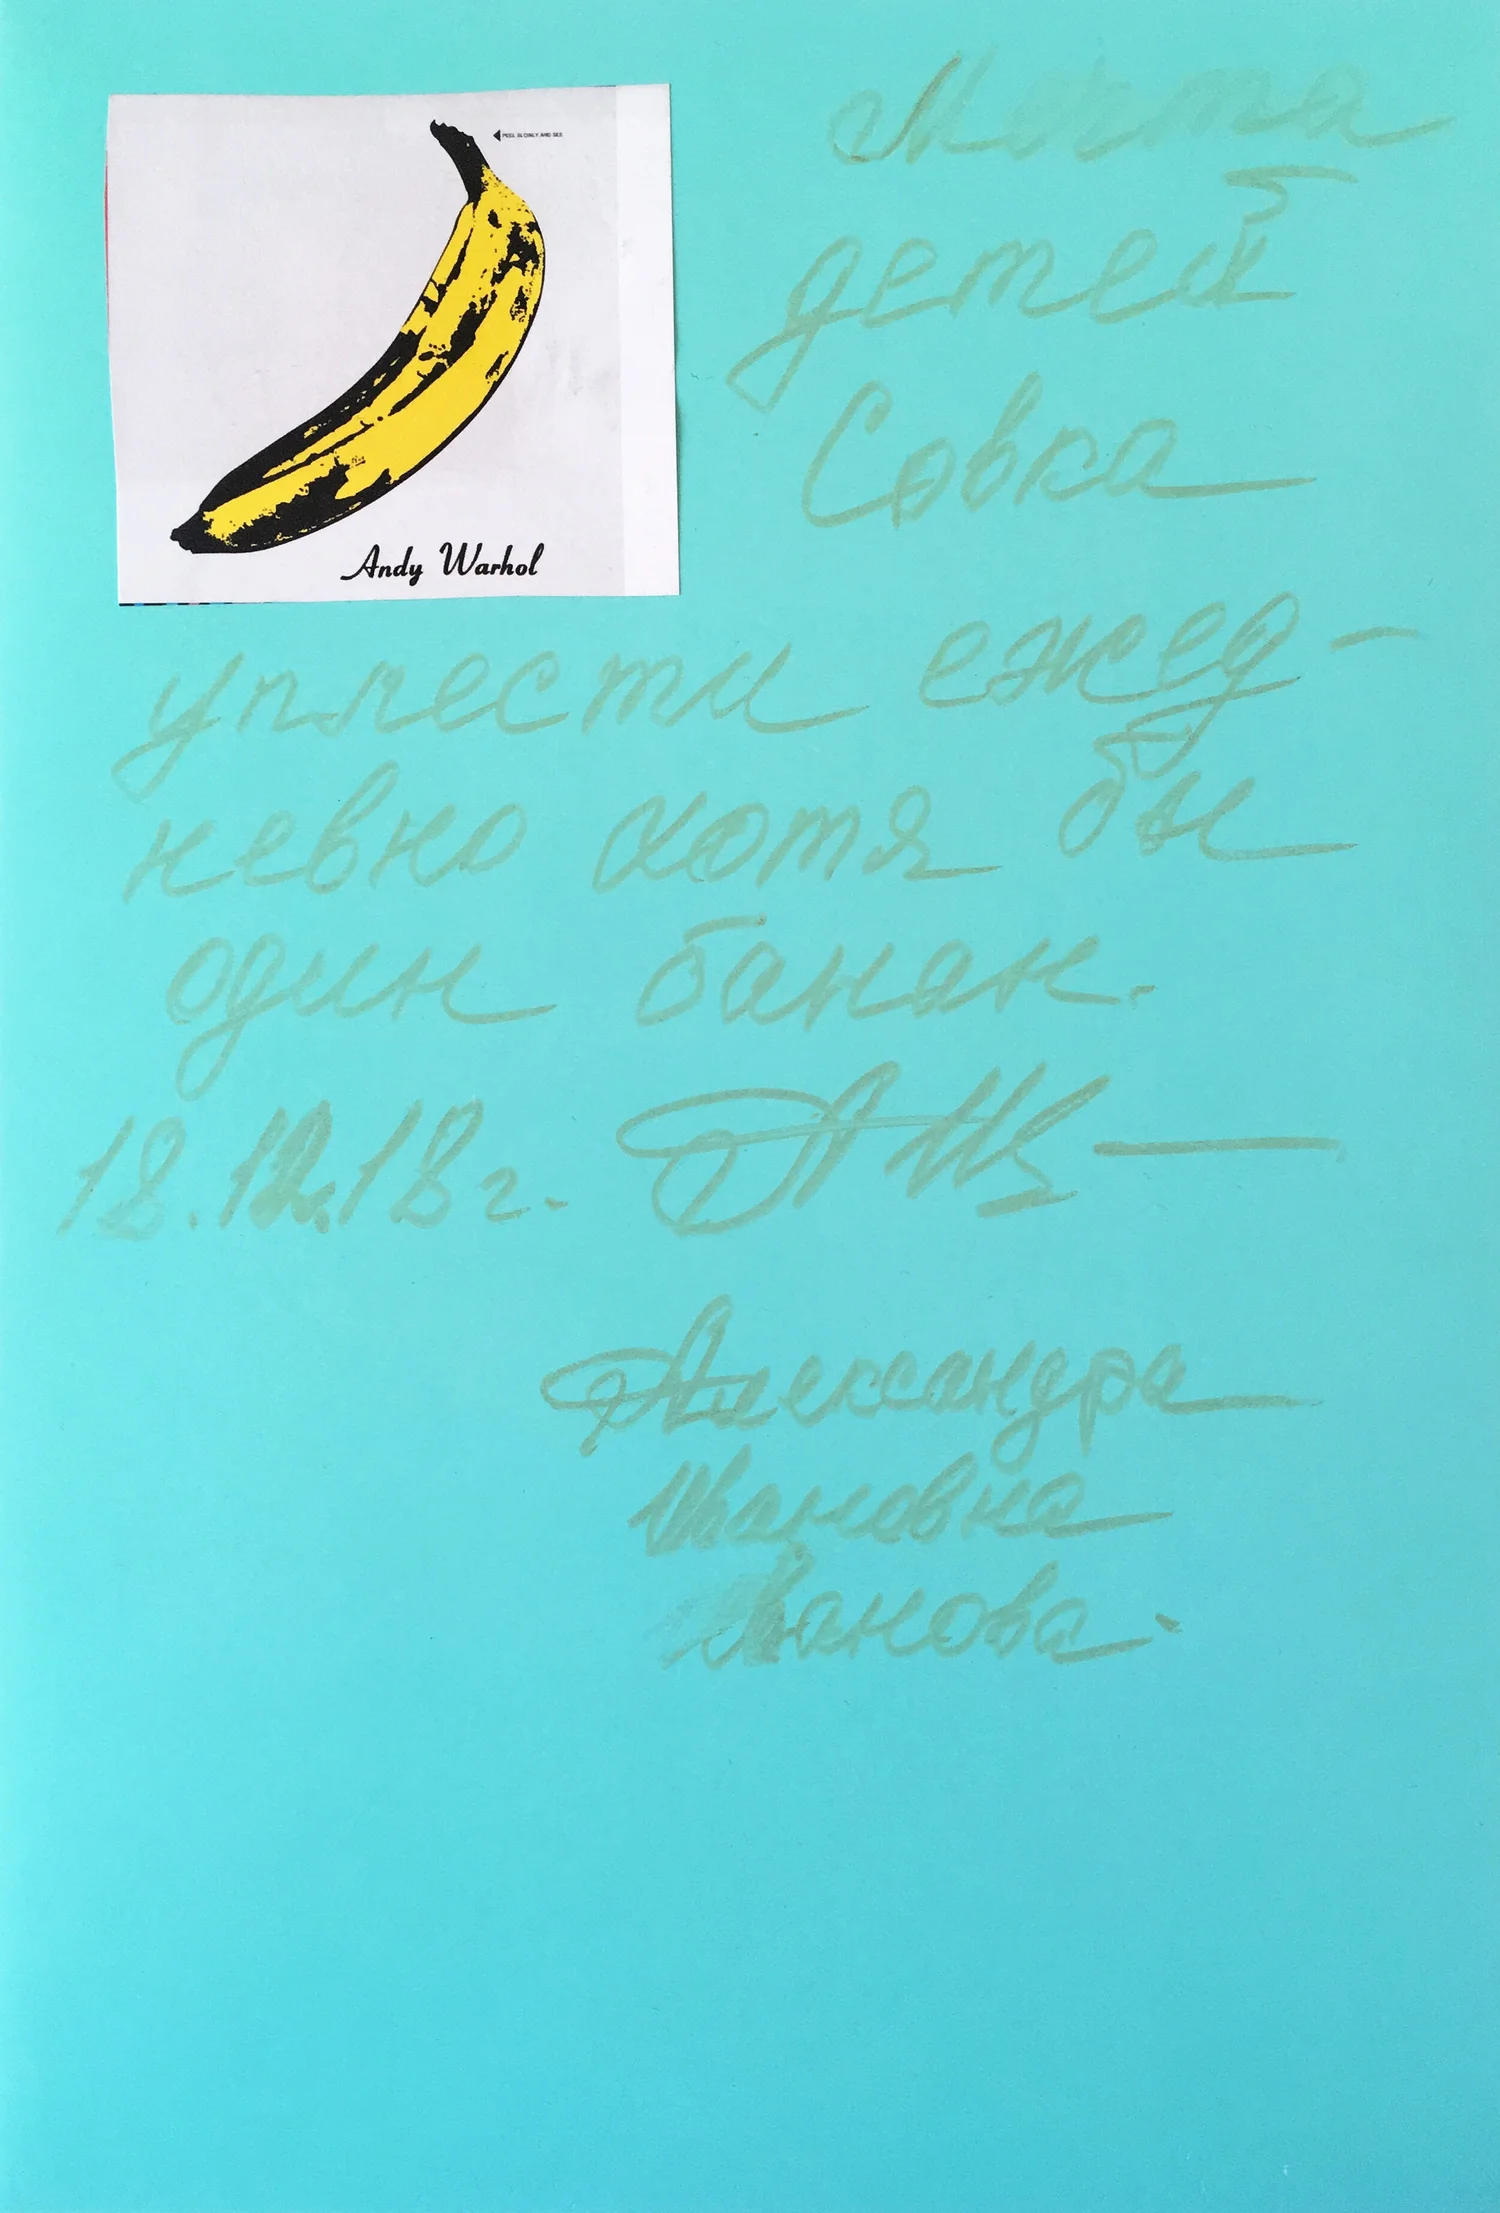 PEEL SLOWLY AND SEE
Andy Warhol
Мечта
детей
Совка
уплести ежед-
невно хотя бы
один банан.
18.12.18г.
Александра
Ивановна
Иванова.